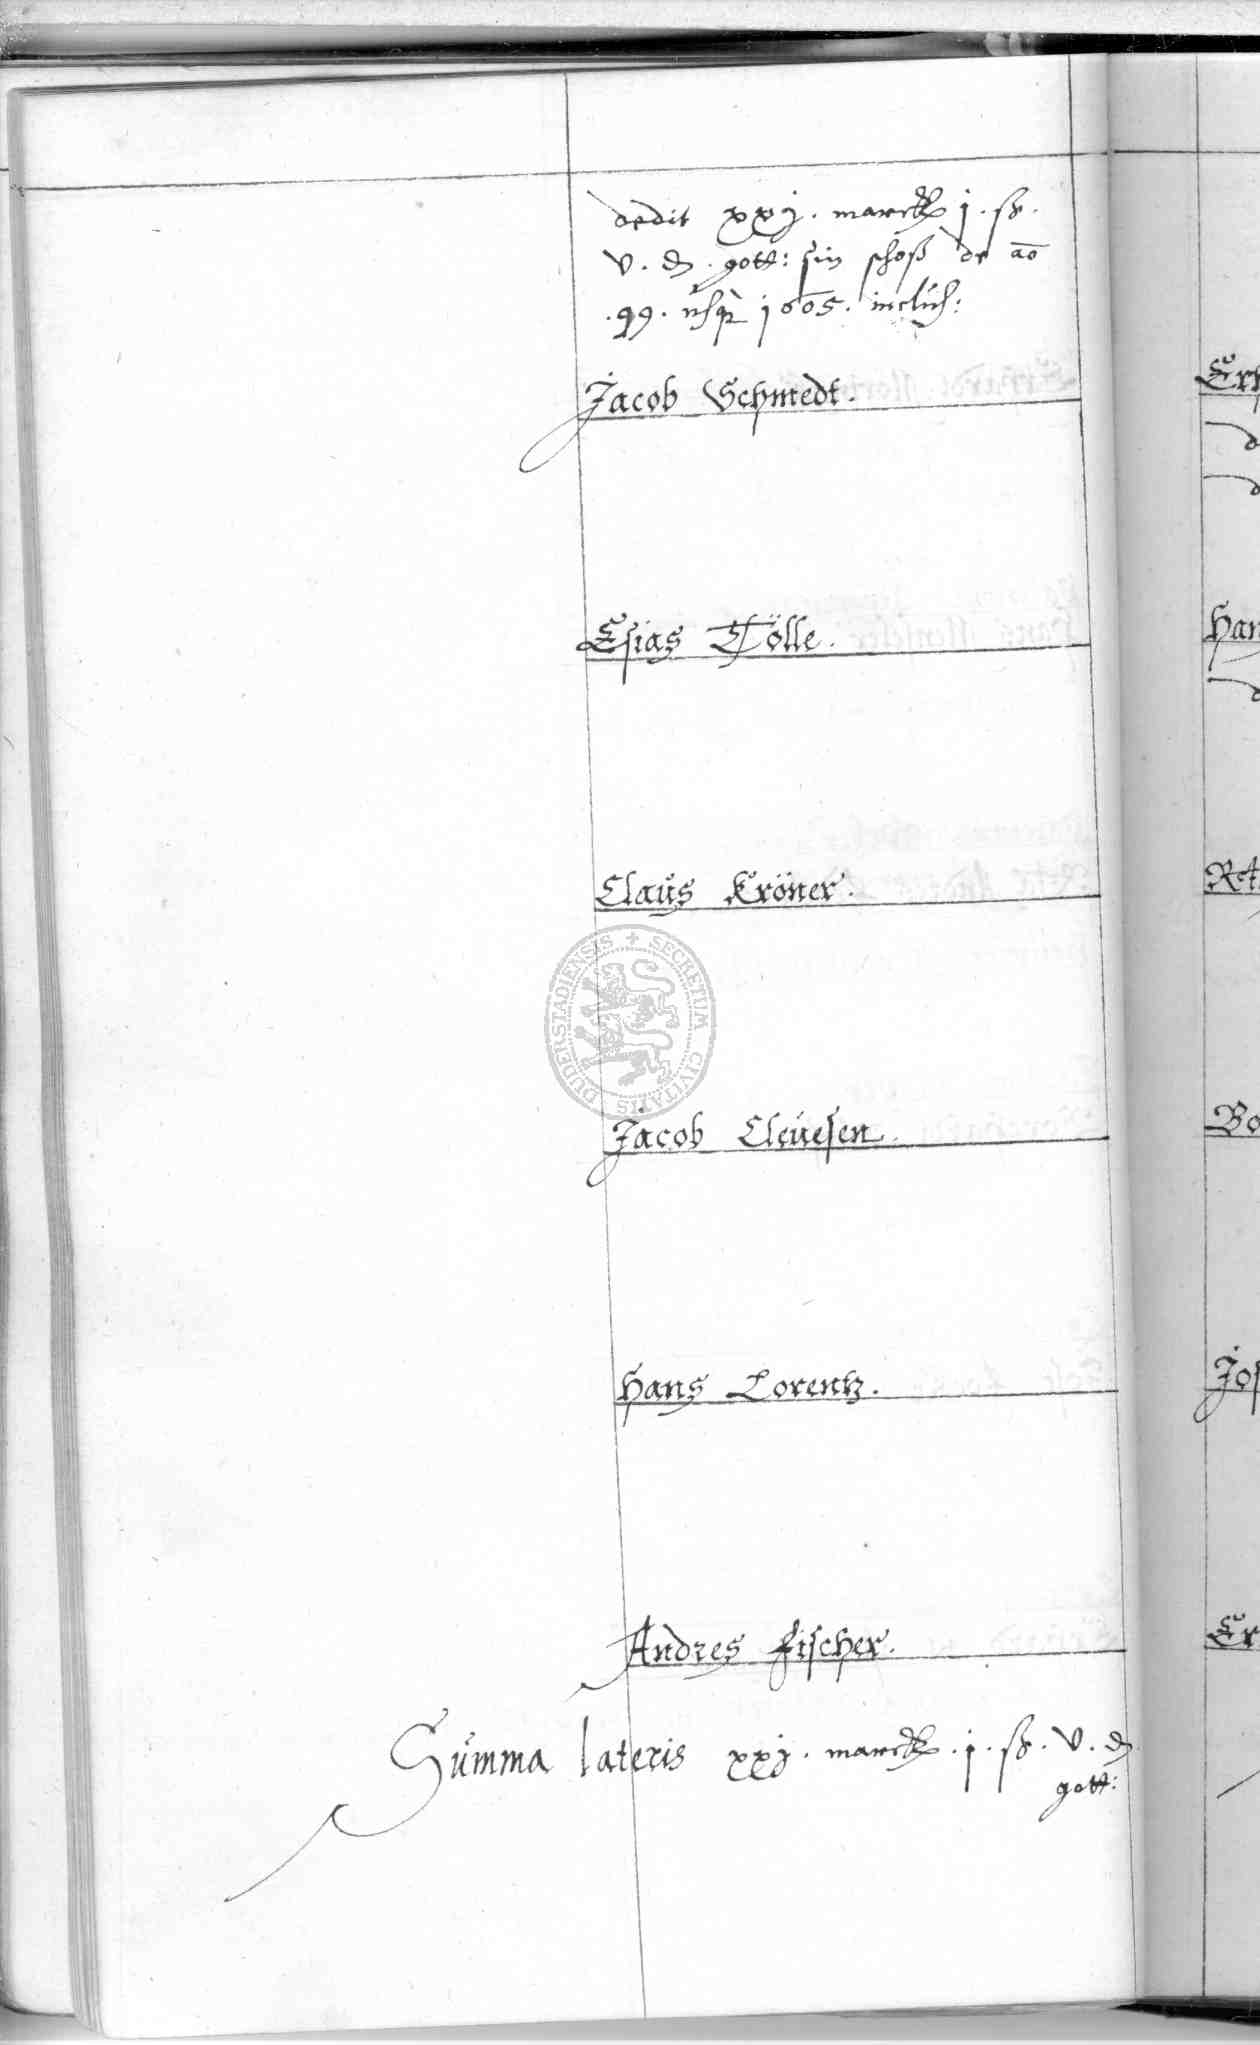 dedit xxj. marck j. ß.
v. d. gott: sin schoß de ao
.99. usq 1605. inclus:
Jacob Schmedt.
Esias Tölle.
Claus Kröner.
SECRETUM CIVITATIS DUDERSTADIENSIS
Jacob Cleuesen.
Hans Lorentz.
Andres Fischer.
Summa lateris xxj. marck. j. ß. v. d
gott:
Han
Bo
Jos
Er